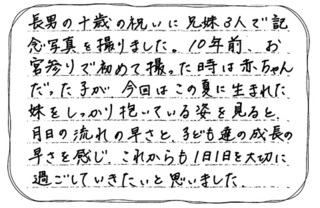 長男の十歳の祝いに兄妹3人で記
念写真を撮りました。10年前、お
宮参りで初めて撮った時は赤ちゃん
だった子が、今回はこの夏に生まれた
妹をしっかり抱いている姿を見ると、
月日の流れの早さと、子ども達の成長の
早さを感じ、これからも1日1日を大切に
過ごしていきたいと思いました。